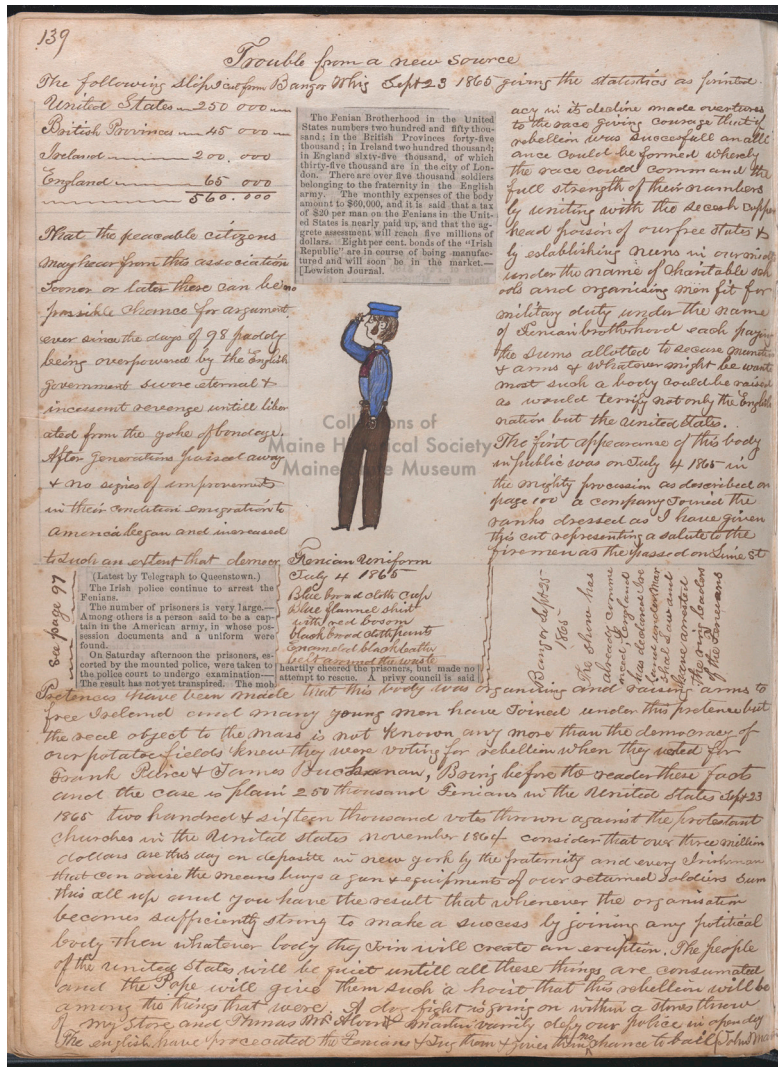 139
Trouble from a new source
The following slip I cut from Bangor Whig Sept 23 1865 giving the statistics as printed.
United States 250 000
British Provinces 45 000
Ireland 200.000
England 65 000
560.000
That the peaceable citizens
may hear from this association
sooner or later there can be no
possible chance for argument.
ever since the days of 98 paddy
being overpowered by the English
government swore eternal &
incessent revenge untill liber
ated from the yoke of bondage.
After generations passed away
& no signes of improvements
in their condition emigration to
America began and increased
to such an extent that democr
The Fenian Brotherhood in the United
States numbers two hundred and fifty thou-
sand; in the British Provinces forty-five
thousand; in Ireland two hundred thousand;
in England sixty-five thousand, of which
thirty-five thousand are in the city of Lon-
don. There are over five thousand soldiers
belonging to the fraternity in the English
army. The monthly expenses of the body
amount to $60,000, and it is said that a tax
of $20 per man on the Fenians in the Unit-
ed States is nearly paid up, and that the ag-
grete sesessment will reach five millions of
dollars. Eight per cent. bonds of the "Irish
Republic" are in course of being manufac-
tured and will soon be in the market.—
[Lewiston Journal.
acy in its decline made overtures
to the race giving courage that if
rebellion was succesfull an alli
ance could be formed whereby
the race could command the
full strength of their numbers
by uniting with the secesh
head poison of our free states &
by establishing nuns in our midst
under the name of charitable sch
ools and organising men fit for
military duty under the name
of Fenian brotherhood each paying
the sums allotted to secure
& arms & whatever might be want
most such a body could be raised
as would terrify not only the English
nation but the united States.
The first appearance of this body
in public was on July 4 1865 in
the mighty procession as described on
page 100 a company joined the
ranks dressed as I have given
this cut representing a salute to the
firemen as the passed on Lime St
Collections of
Maine Historical Society
Maine State Museum
see page 97
(Latest by Telegraph to Queenstown.)
The Irish police continue to arrest the
Fenians.
The number of prisoners is very large.—
Among others a person said to be a cap-
tain in the American army, in whose pos-
session documents and a uniform were
found.
On Saturday afternoon the prisoners, es-
corted by the mounted police, were taken to
the police court to undergo examination—
The result has not yet transpired. The mob
heartily cheered the prisoners, but made no
attempt to rescue. A privy council is said
Fenian Uniform
July 4 1865
Blue broad cloth cap
Blue flannel shirt
with red bosom
black broad cloth pants
Enameled black leather
belt around the waste
Bangor Sept 25
1865
The show has
already comme
nced, England
has declared Ire
land under Mar
shal Law and
have arrested
the ring leaders
of the Fenians
Pretences have been made that this body was organising and raising arms to
free Ireland and many young men have joined under this pretence but
the real object to the mass is not known any more than the democracy of
our potatoe fields knew they were voting for rebellion when they voted for
Frank Peirce & James Buckanan, Bring before the reader these facts
and the case is plain 250 thousand Fenians in the United States Sept 23
1865 two hundred & sixteen thousand votes thrown against the protestant
churches in the United states november 1864 consider that over three million
dollars are this day on deposite in new york by the fraternity and every Irishman
that can raise the means buys a gun & equipments of our returned Soldiers sum
this all up and you have the result that whenever the organisation
becomes sufficiently strong to make a success by joining any political
body then whatever body they join will create an eruption. The people
of the united States will be quiet untill all these things are consumated
and the Pope will give them such a hoist that this rebellion will be
among the things that were. A dog fight is going on within a stones throw
of my store and Thomas martin defy our police in open day
The english have prosecuted the Fenians & gives them no chance to bail John